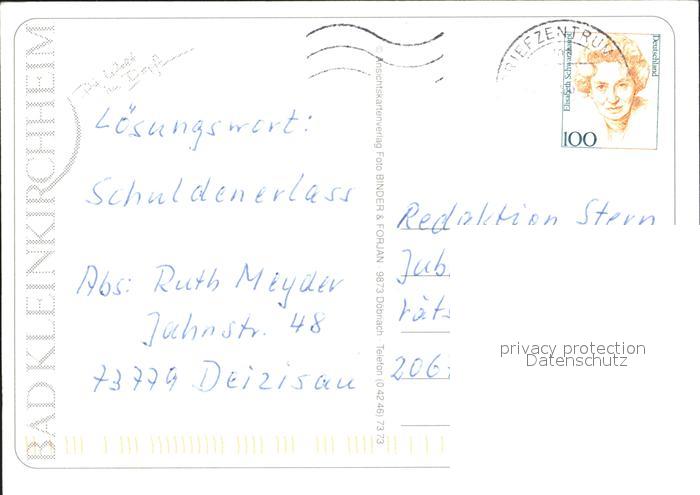 BAD KLEINKIRCHHEIM
Lösungswort:
Schuldenerlass
Abs: Ruth Meyder
Jahnstr. 48
73779 Deizisau
© Ansichtskartenverlag Foto BINDER & FORJAN 9873 Döbriach Telefon (0 42 46) 73 73
BRIEFZENTRUM
Deutschland
Elisabeth Schwarzhaupt
100
Redaktion Stern
Jub
räts
206
privacy protection
Datenschutz